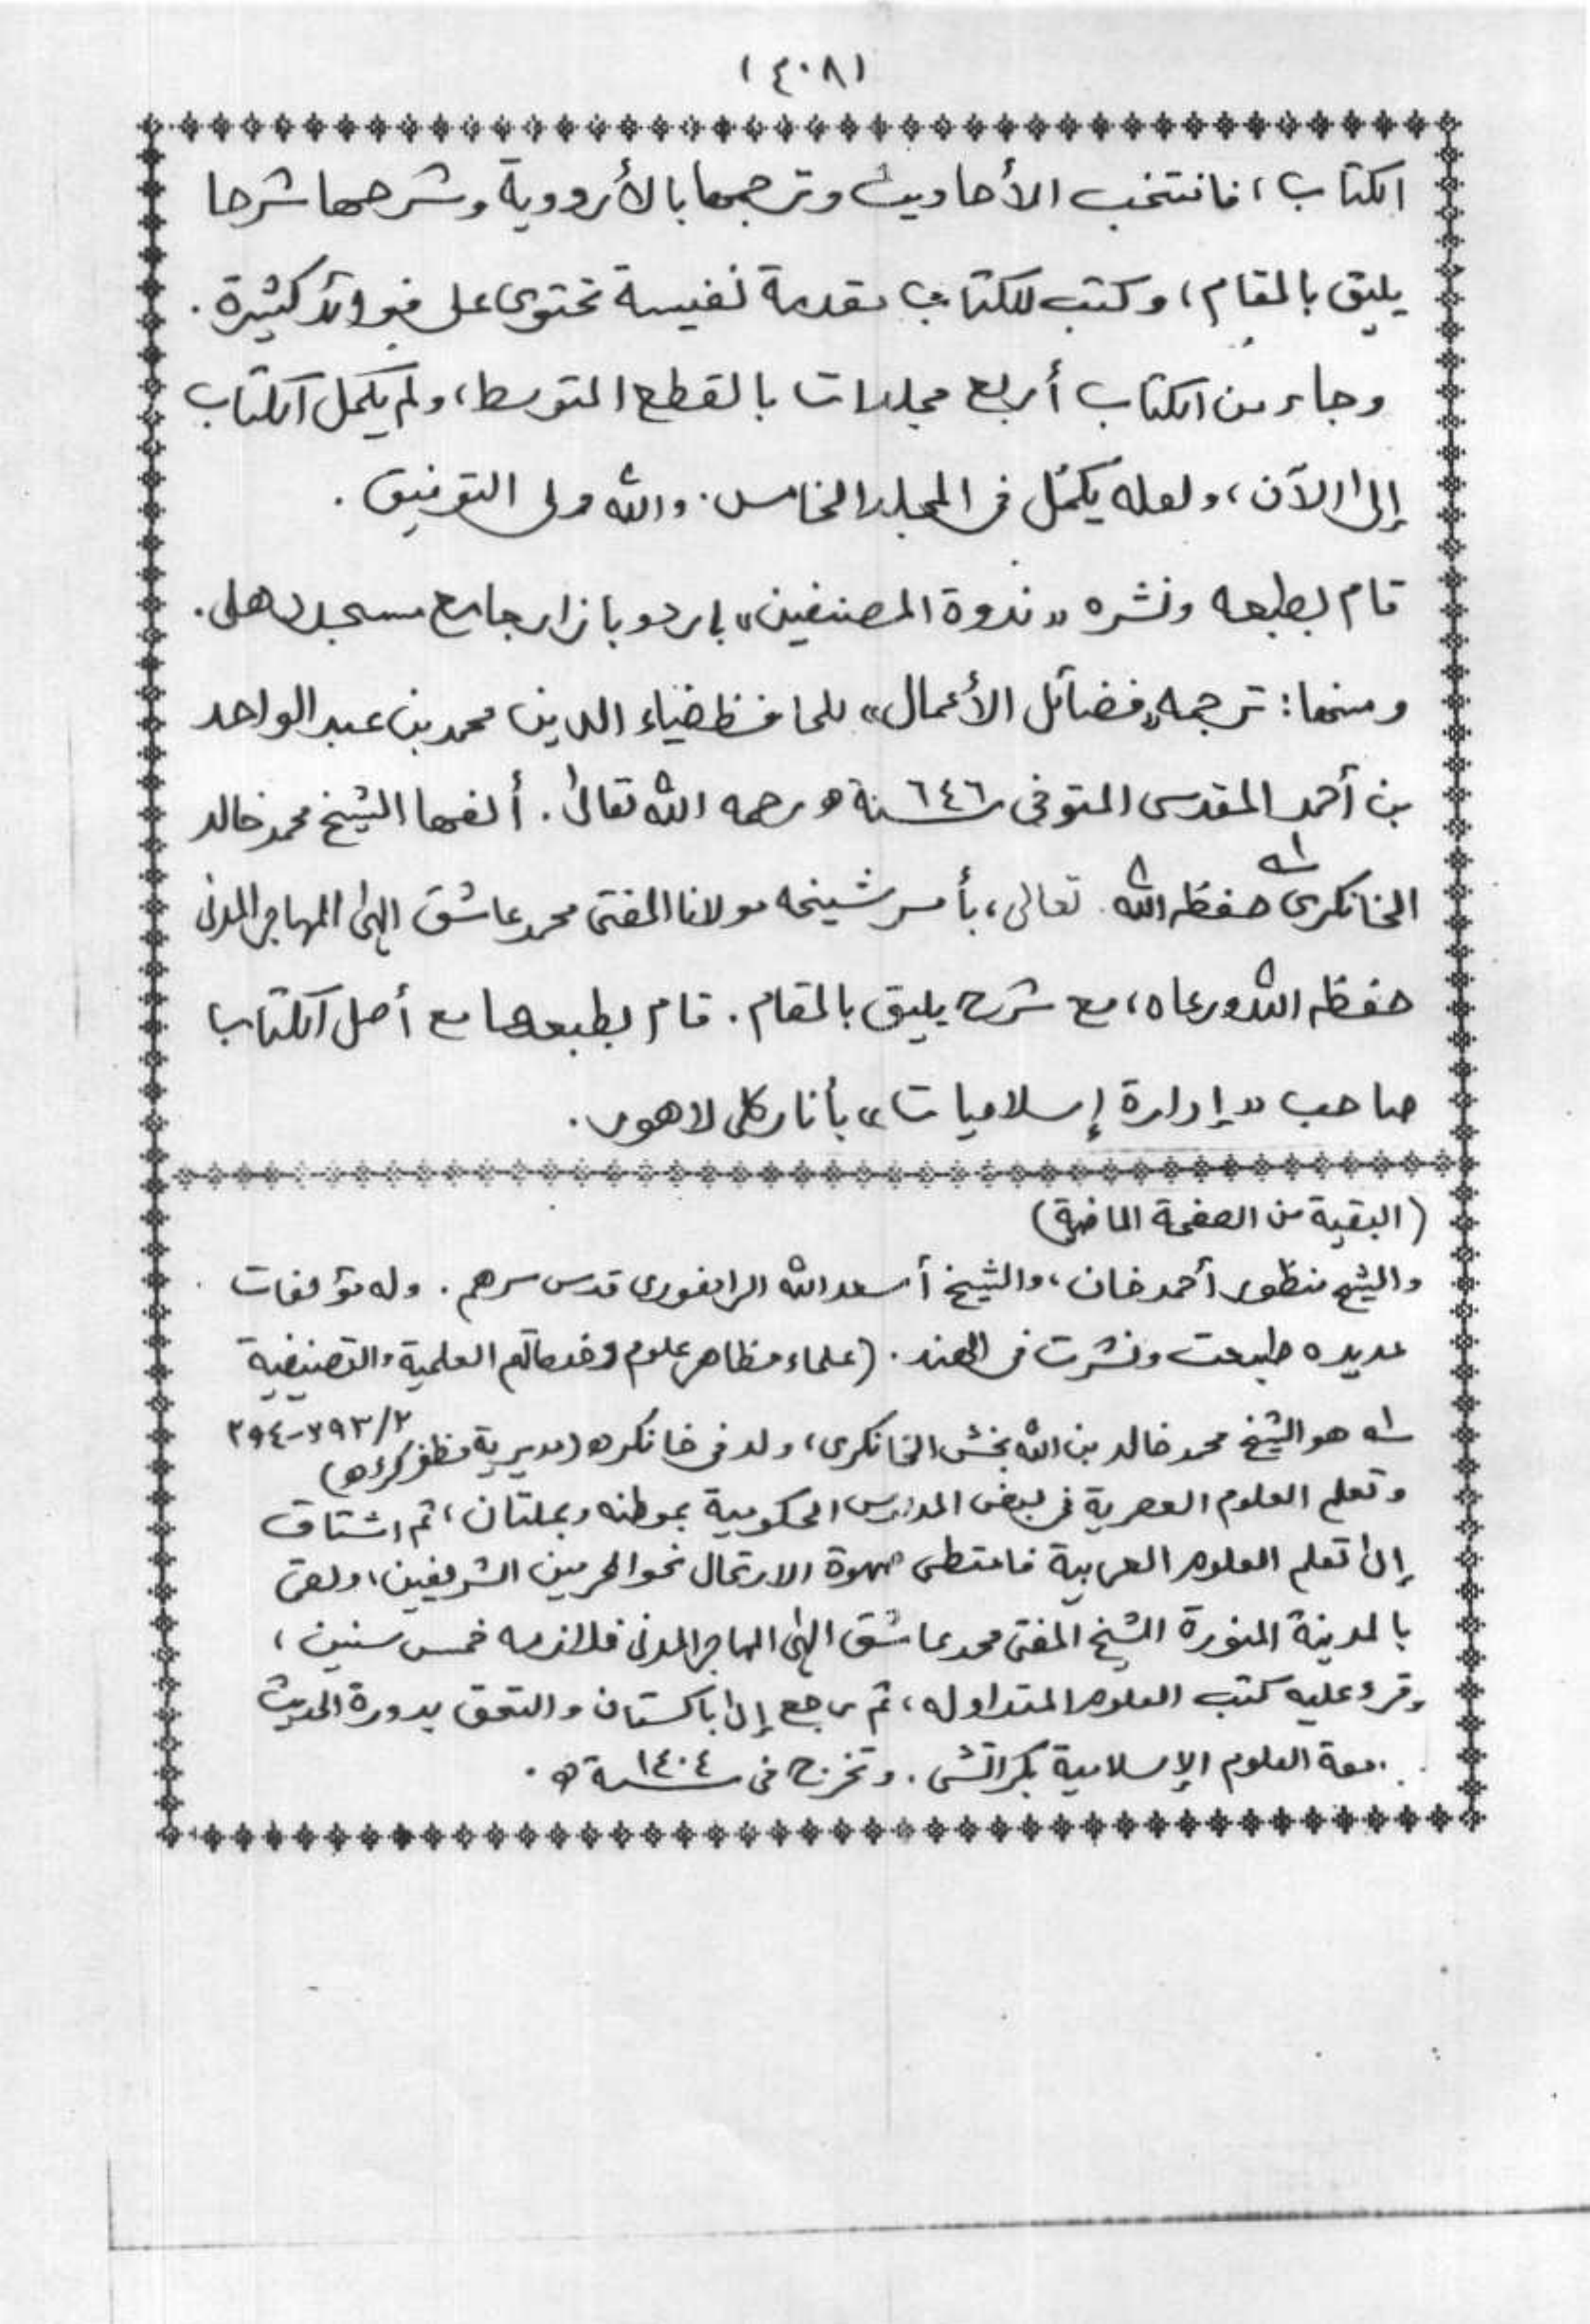 (٤٠٨)
الكتاب، فانتخب الأحاديث وترجمها بالأردوية وشرحها شرحا
يليق بالمقام، وكتب للكتاب مقدمة نفيسة تحتوى على فوائد كثيرة.
وجاء من الكتاب أربع مجلدات بالقطع المتوسط، ولم يكمل الكتاب
إلى الآن، ولعله يكمل فى المجلد الخامس. والله ولى التوفيق.
قام بطبعه ونشره «ندوة المصنفين» بأردو بازار جامع مسجد دهلى.
ومنها: ترجمه «فضائل الأعمال» للحافظ ضياء الدين محمد بن عبد الواحد
بن أحمد المقدسى المتوفى سنة ٦٤٦ه رحمه الله تعالى. ألفها الشيخ محمد خالد
الخانكرى له حفظه الله تعالى، بأمر شيخه مولانا المفتى محمد عاشق إلهى المهاجر المدنى
حفظه الله ورعاه، مع شرح يليق بالمقام. قام بطبعها مع أصل الكتاب
صاحب «إدارة إسلاميات» بأناركلى لاهور.
(البقية من الصفحة الماضية)
والشيخ منظور أحمد خان، والشيخ أسعد الله الرامفورى قدس سرهم. وله مؤلفات
عديده طبعت ونشرت فى الهند. (علماء مظاهر علوم وخدماتهم العلمية والتصنيفية
٢/٢٩٣-٢٩٤
له هو الشيخ محمد خالد بن الله بخش الخانكرى، ولد فى خانكره (مديرية مظفر كره)
وتعلم العلوم العصرية فى بعض المدارس الحكومية بموطنه وبملتان، ثم اشتاق
إلى تعلم العلوم العربية فامتطى صهوة الارتحال نحو الحرمين الشريفين، ولقى
بالمدينة المنورة الشيخ المفتى محمد عاشق إلهى المهاجر المدنى فلازمه خمس سنين،
وقرء عليه كتب العلوم المتداوله، ثم رجع إلى باكستان والتحق بدورة الحديث
معة العلوم الإسلامية بكراتشى. وتخرج فى سنة ١٤٠٤ه.